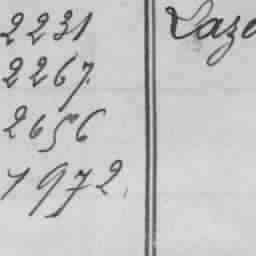 2231
2267.
2656
1972.